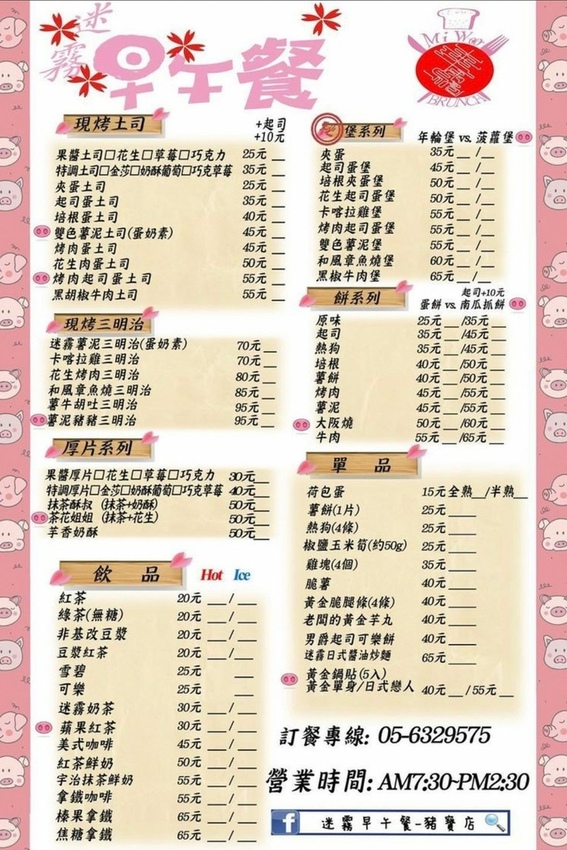 迷霧
早午餐
Mi Woo
BRUNCH
現烤土司 +起司
+10元
果醬土司□花生□草莓□巧克力 25元
特調土司□金莎□奶酥葡萄□巧克草莓 35元
夾蛋土司 25元
起司蛋土司 35元
培根蛋土司 40元
雙色薯泥土司(蛋奶素) 45元
烤肉蛋土司 45元
花生肉蛋土司 50元
烤肉起司蛋土司 55元
黑胡椒牛肉土司 55元
現烤三明治
迷霧薯泥三明治(蛋奶素) 70元
卡嗞拉雞三明治 70元
花生烤肉三明治 80元
和風章魚燒三明治 85元
薯牛胡吐三明治 95元
薯泥豬豬三明治 95元
厚片系列
果醬厚片□花生□草莓□巧克力 30元
特調厚片□金莎□奶酥葡萄□巧克草莓 40元
抹茶酥叔 (抹茶+奶酥) 50元
茶花姐姐 (抹茶+花生) 50元
芋香奶酥 50元
飲 品 Hot Ice
紅茶 20元 __/__
綠茶(無糖) 20元 __/__
非基改豆漿 20元 __/__
豆漿紅茶 20元 __/__
雪碧 25元 __
可樂 25元 __
迷霧奶茶 30元 __/__
蘋果紅茶 30元 __/__
美式咖啡 45元 __/__
紅茶鮮奶 50元 __/__
宇治抹茶鮮奶 55元 __/__
拿鐵咖啡 55元 __/__
榛果拿鐵 65元 __/__
焦糖拿鐵 65元 __/__
堡系列 年輪堡 vs. 菠蘿堡
夾蛋 35元 __/__
起司蛋堡 45元 __/__
培根夾蛋堡 50元 __/__
花生起司蛋堡 50元 __/__
卡嗞拉雞堡 55元 __/__
烤肉起司蛋堡 55元 __/__
雙色薯泥堡 55元 __/__
和風章魚燒堡 60元 __/__
黑椒牛肉堡 65元 __/__
餅系列 起司+10元
蛋餅 vs. 南瓜抓餅
原味 25元 __/35元 __
起司 35元 __/45元 __
熱狗 35元 __/45元 __
培根 40元 __/50元 __
薯餅 40元 __/50元 __
烤肉 45元 __/55元 __
薯泥 45元 __/55元 __
大阪燒 50元 __/60元 __
牛肉 55元 __/65元 __
單 品
荷包蛋 15元 全熟__/半熟__
薯餅(1片) 25元
熱狗(4條) 25元
椒鹽玉米筍(約50g) 25元
雞塊(4個) 35元
脆薯 40元
黃金脆腿條(4條) 40元
老闆的黃金羊丸 40元
男爵起司可樂餅 40元
迷霧日式醬油炒麵 65元
黃金鍋貼(5入)
黃金單身/日式戀人 40元 __/55元 __
訂餐專線: 05-6329575
營業時間: AM7:30~PM2:30
f 迷霧早午餐-豬寶店